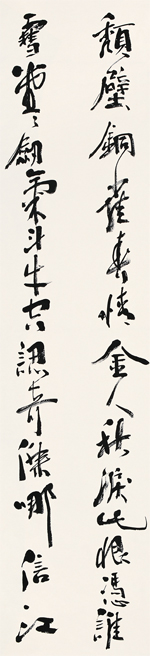 頹壁銅雀春情金人秋淚此恨憑誰
雪堂々劍氣斗牛空認奇傑那信江